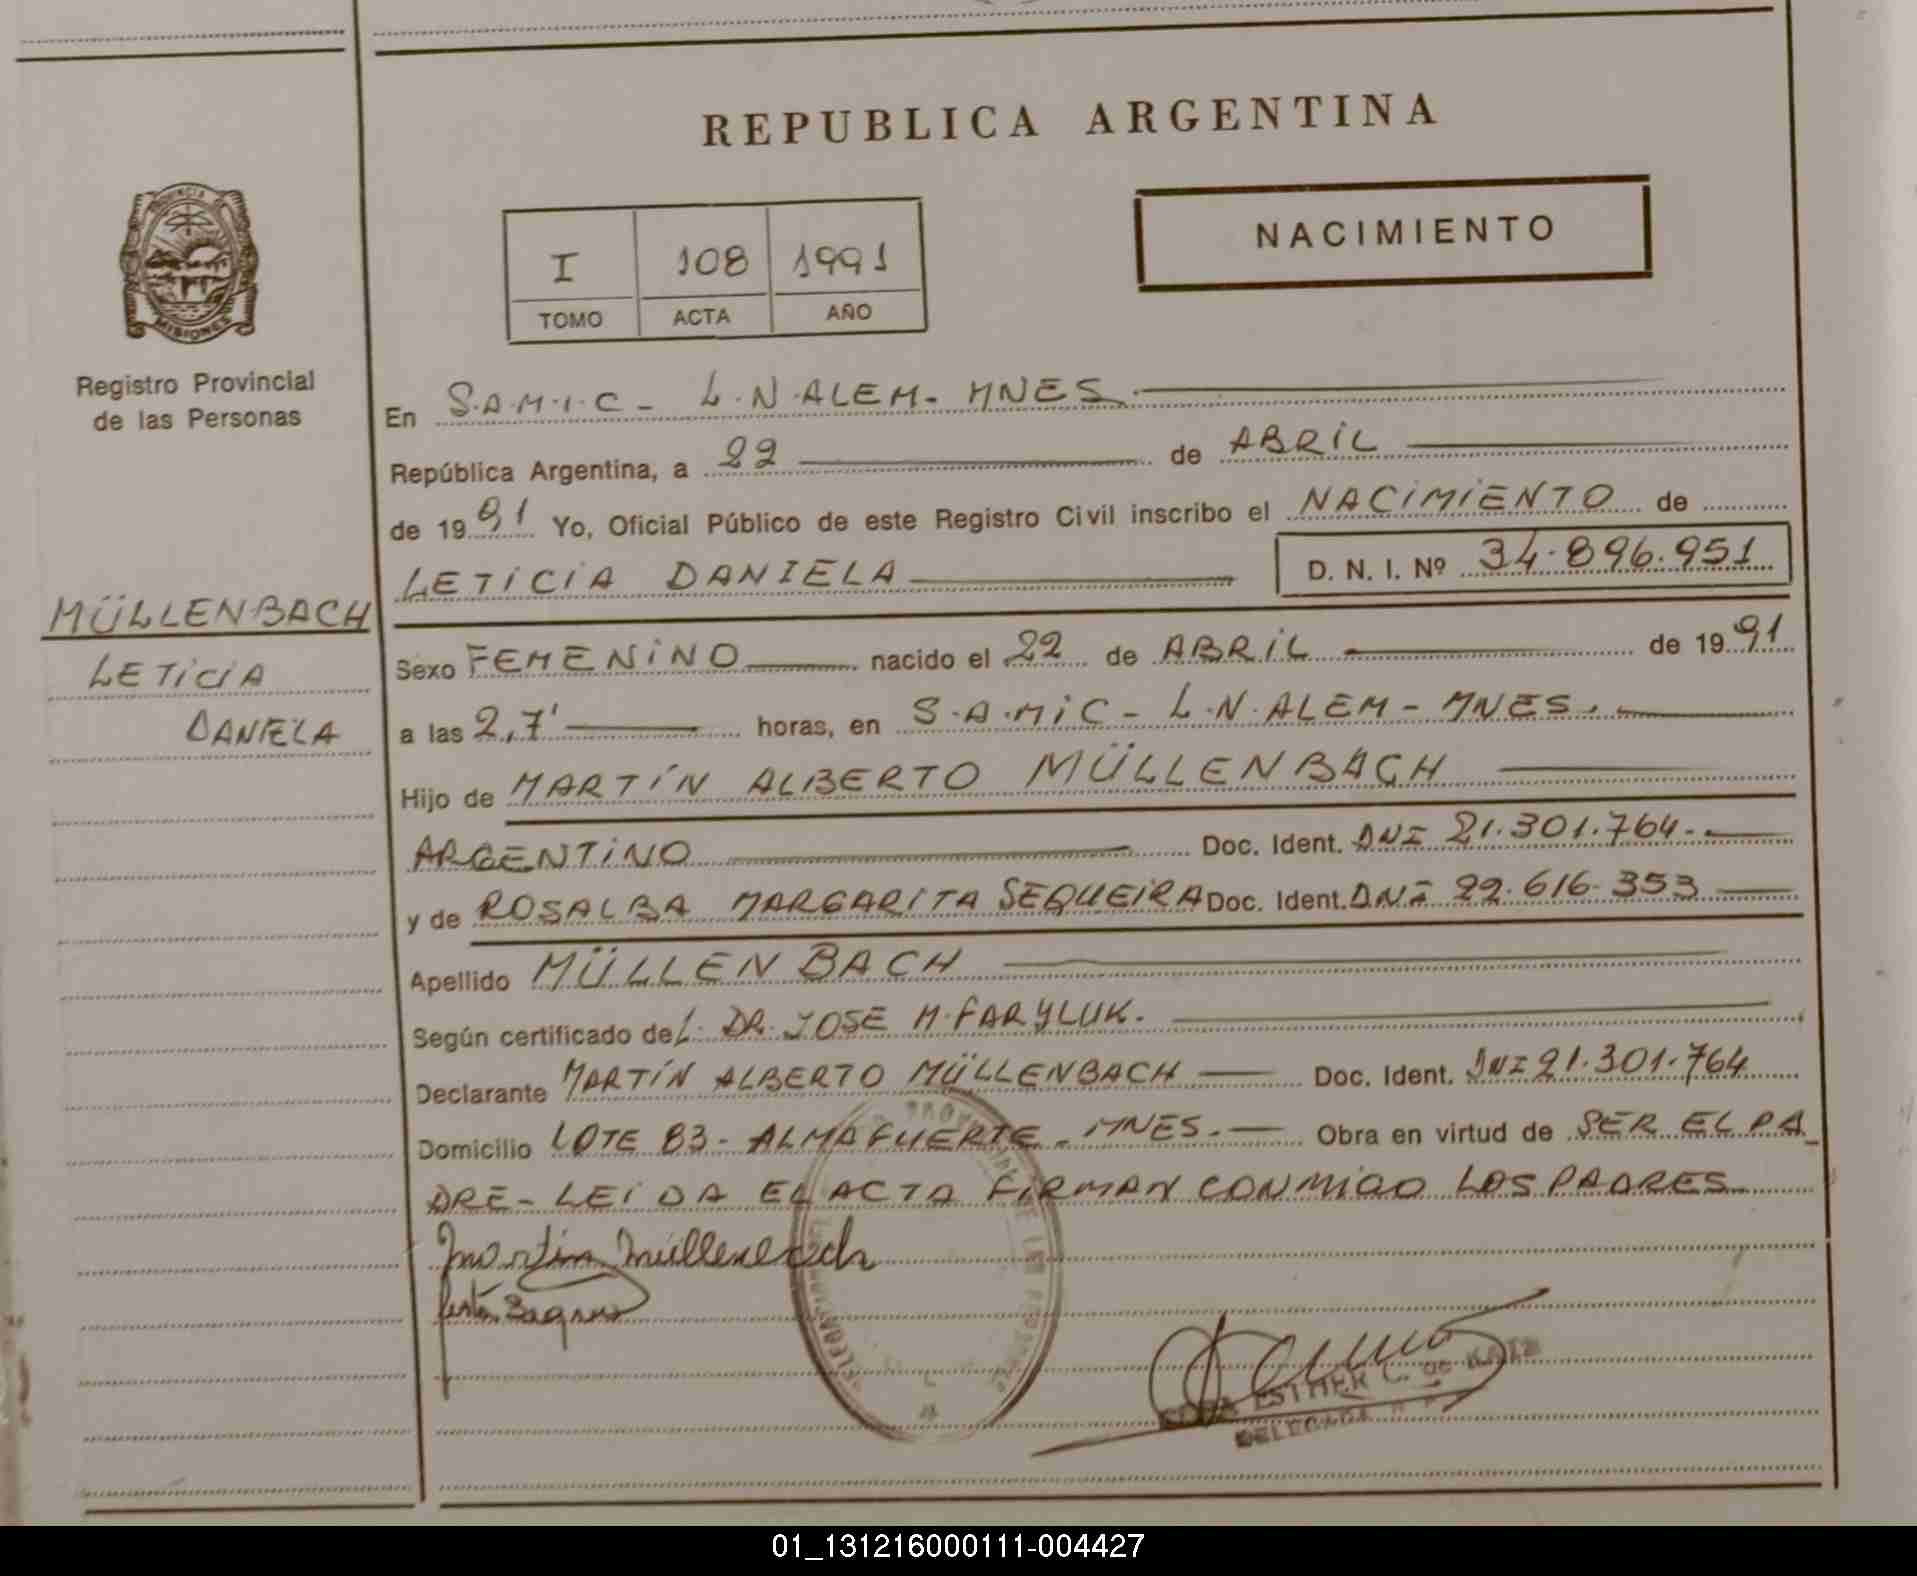 REPUBLICA ARGENTINA
PROVINCIA
MISIONES
Registro Provincial
de las Personas
I 108 1991
TOMO ACTA AÑO
NACIMIENTO
En S.A.M.I.C - L.N.ALEM - MNES.
República Argentina, a 22 de ABRIL
de 1991 Yo, Oficial Público de este Registro Civil inscribo el NACIMIENTO de
LETICIA DANIELA D. N. I. Nº 34.896.951
MÜLLENBACH
LETICIA
DANIELA
Sexo FEMENINO nacido el 22 de ABRIL de 1991
a las 2,7' horas, en S.A.MIC - L.N.ALEM - MNES.
Hijo de MARTÍN ALBERTO MÜLLENBACH
ARGENTINO Doc. Ident. DNI 21.301.764.-
y de ROSALBA MARGARITA SEQUEIRA Doc. Ident. DNI 22.616.353
Apellido MÜLLENBACH
Según certificado deL. DR. JOSE M.FARYLUK.
Declarante MARTÍN ALBERTO MÜLLENBACH Doc. Ident. DNI 21.301.764
Domicilio LOTE 83 - ALMAFUERTE - MNES. - Obra en virtud de SER EL PA_
DRE - LEIDA EL ACTA FIRMAN CONMIGO LOS PADRES
Martín Müllenbach
ESTHER C. de KATZ
DELEGADA
01_131216000111-004427